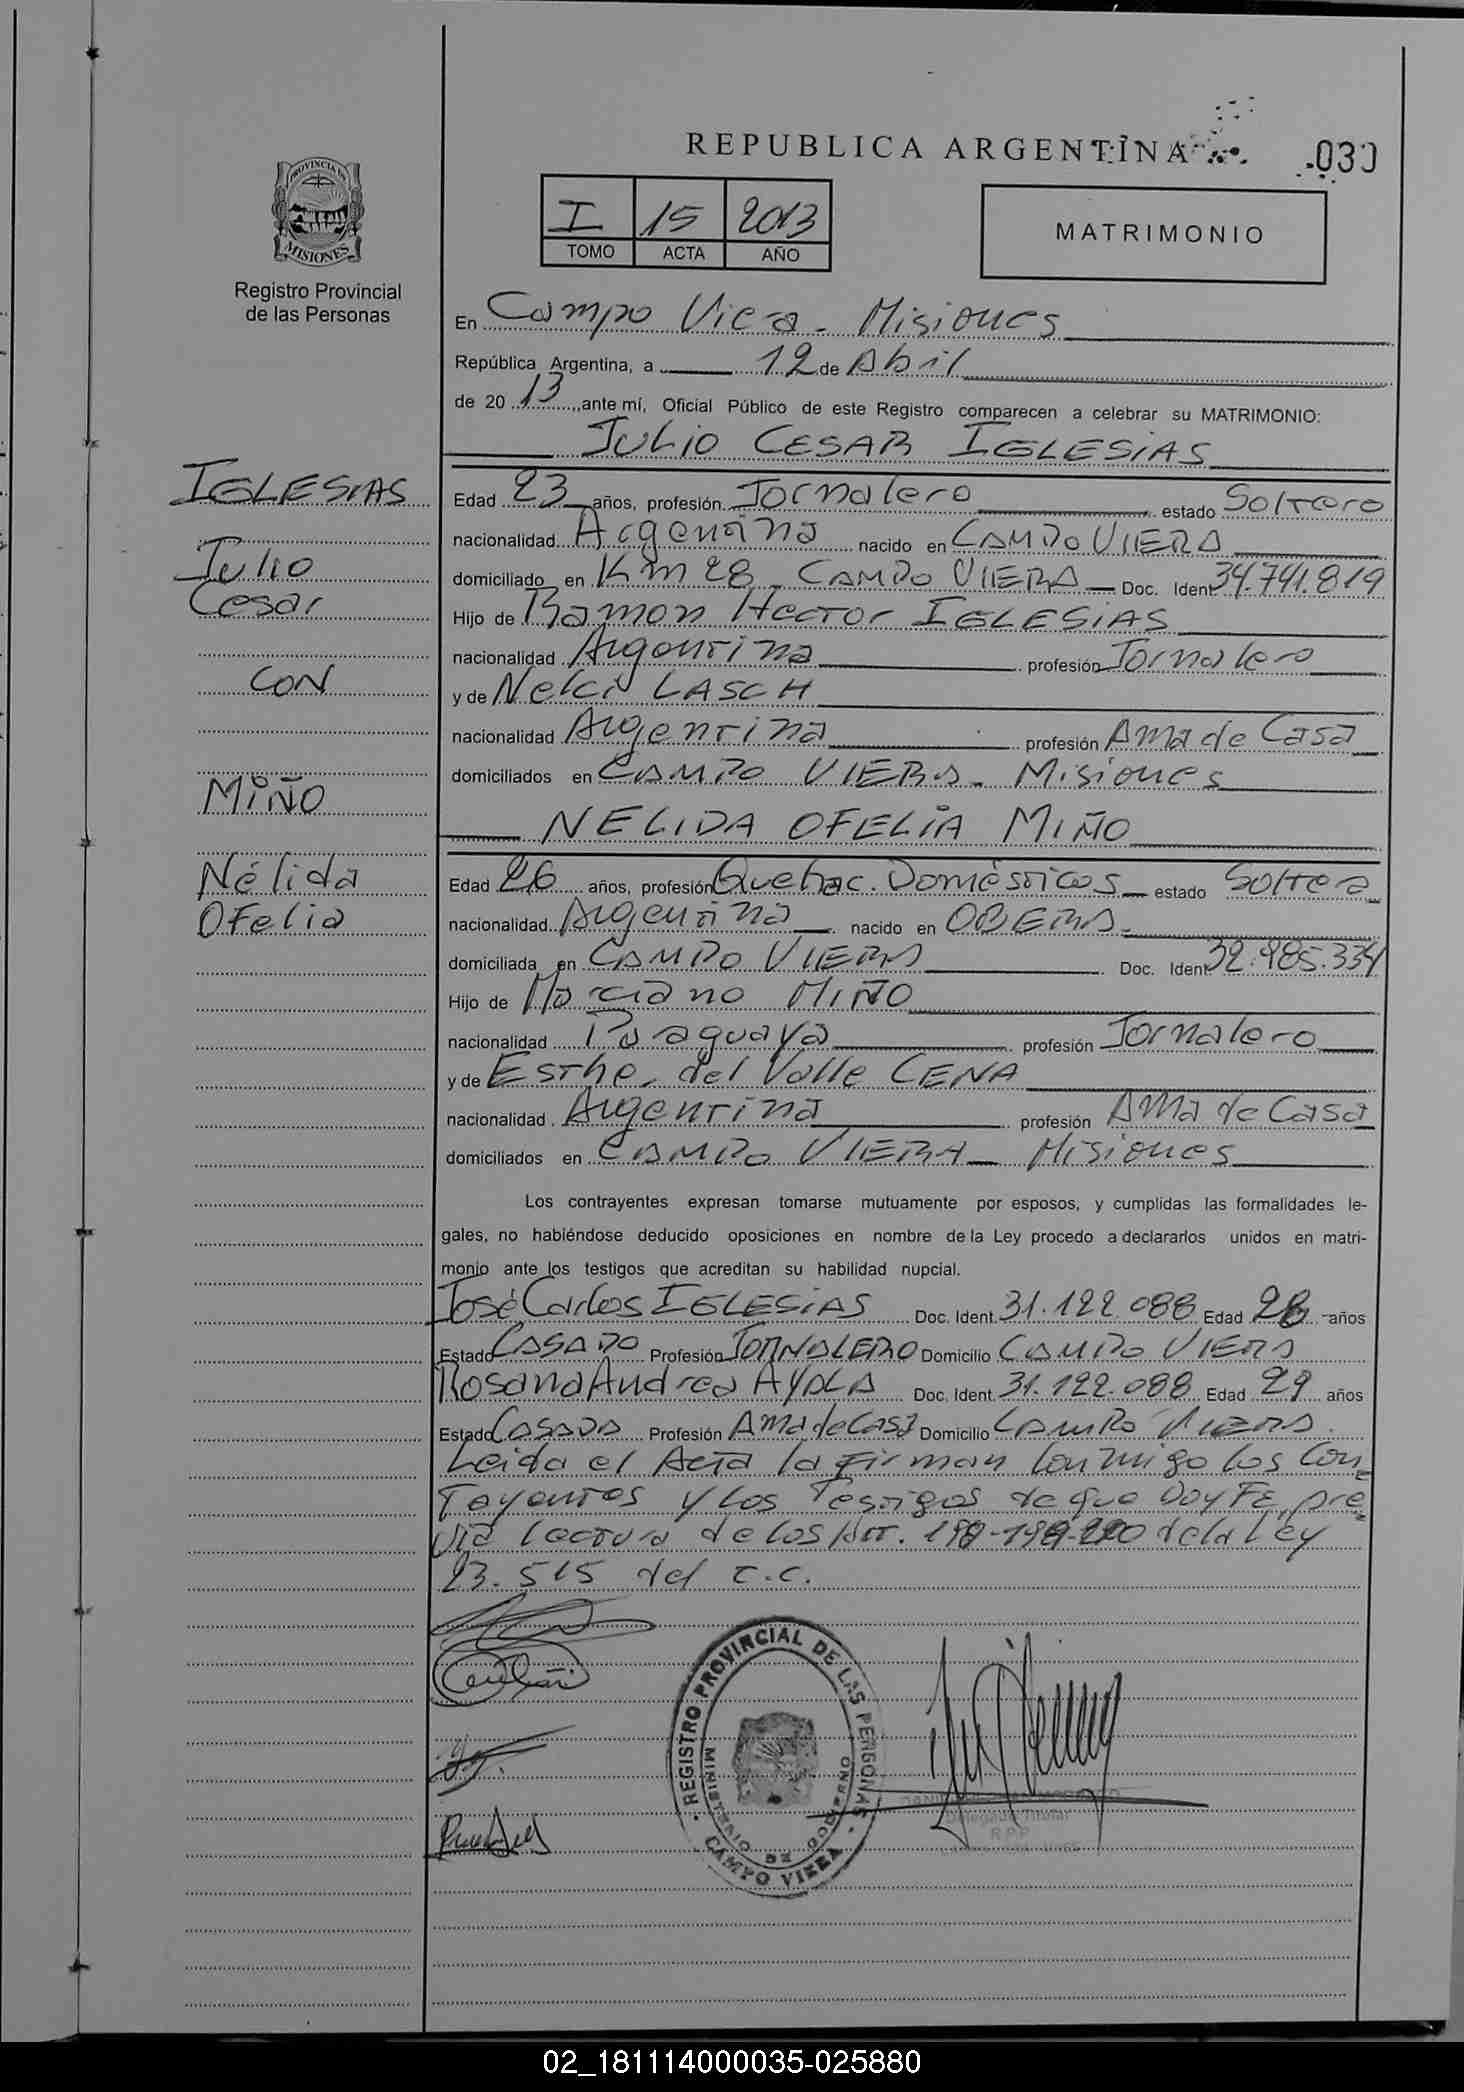 REPUBLICA ARGENTINA
030
PROVINCIA DE
MISIONES
Registro Provincial
de las Personas
I 15 2013
TOMO ACTA AÑO
MATRIMONIO
En Campo Viera - Misiones
República Argentina, a 12 de Abril
de 20 13 ,ante mí, Oficial Público de este Registro comparecen a celebrar su MATRIMONIO:
JULIO CESAR IGLESIAS
IGLESIAS
Julio
Cesar
CON
MIÑO
Nélida
OFelia
Edad 23 años, profesión Jornalero estado Soltero
nacionalidad Argentina nacido en CAMPO VIERA
domiciliado en Km 28 - CAMPO VIERA Doc. Ident 34.741.819
Hijo de Ramon Hector IGLESIAS
nacionalidad Argentina profesión Jornalero
y de Nelci LASCH
nacionalidad Argentina profesión Ama de Casa
domiciliados en CAMPO VIERA - Misiones
NELIDA OFELIA MIÑO
Edad 26 años, profesión Quehac. Domésticos estado Soltera
nacionalidad Argentina nacido en OBERA
domiciliada en CAMPO VIERA Doc. Ident 32.985.334
Hijo de Marciano MIÑO
nacionalidad Paraguaya profesión Jornalero
y de Esther del Valle CENA
nacionalidad Argentina profesión AMA de Casa
domiciliados en CAMPO VIERA - Misiones
Los contrayentes expresan tomarse mutuamente por esposos, y cumplidas las formalidades le-
gales, no habiéndose deducido oposiciones en nombre de la Ley procedo a declararlos unidos en matri-
monio ante los testigos que acreditan su habilidad nupcial.
José Carlos IGLESIAS Doc. Ident. 31.122.088 Edad 28 años
Estado CASADO Profesión JORNALERO Domicilio CAMPO VIERA
Rosana Andrea AYALA Doc. Ident. 31.122.088 Edad 29 años
Estado CASADA Profesión Ama de Casa Domicilio CAMPO VIERA
Leida el Acta la Firman Conmigo los Con
Tayentes y los Testigos de que Doy FE, pre
via lectura de los Art. 198-199-200 de la Ley
23.515 del C.C.
REGISTRO PROVINCIAL DE LAS PERSONAS
MINISTERIO DE GOBIERNO
CAMPO VIERA
Delegado Titular
R.P.P.
02_181114000035-025880